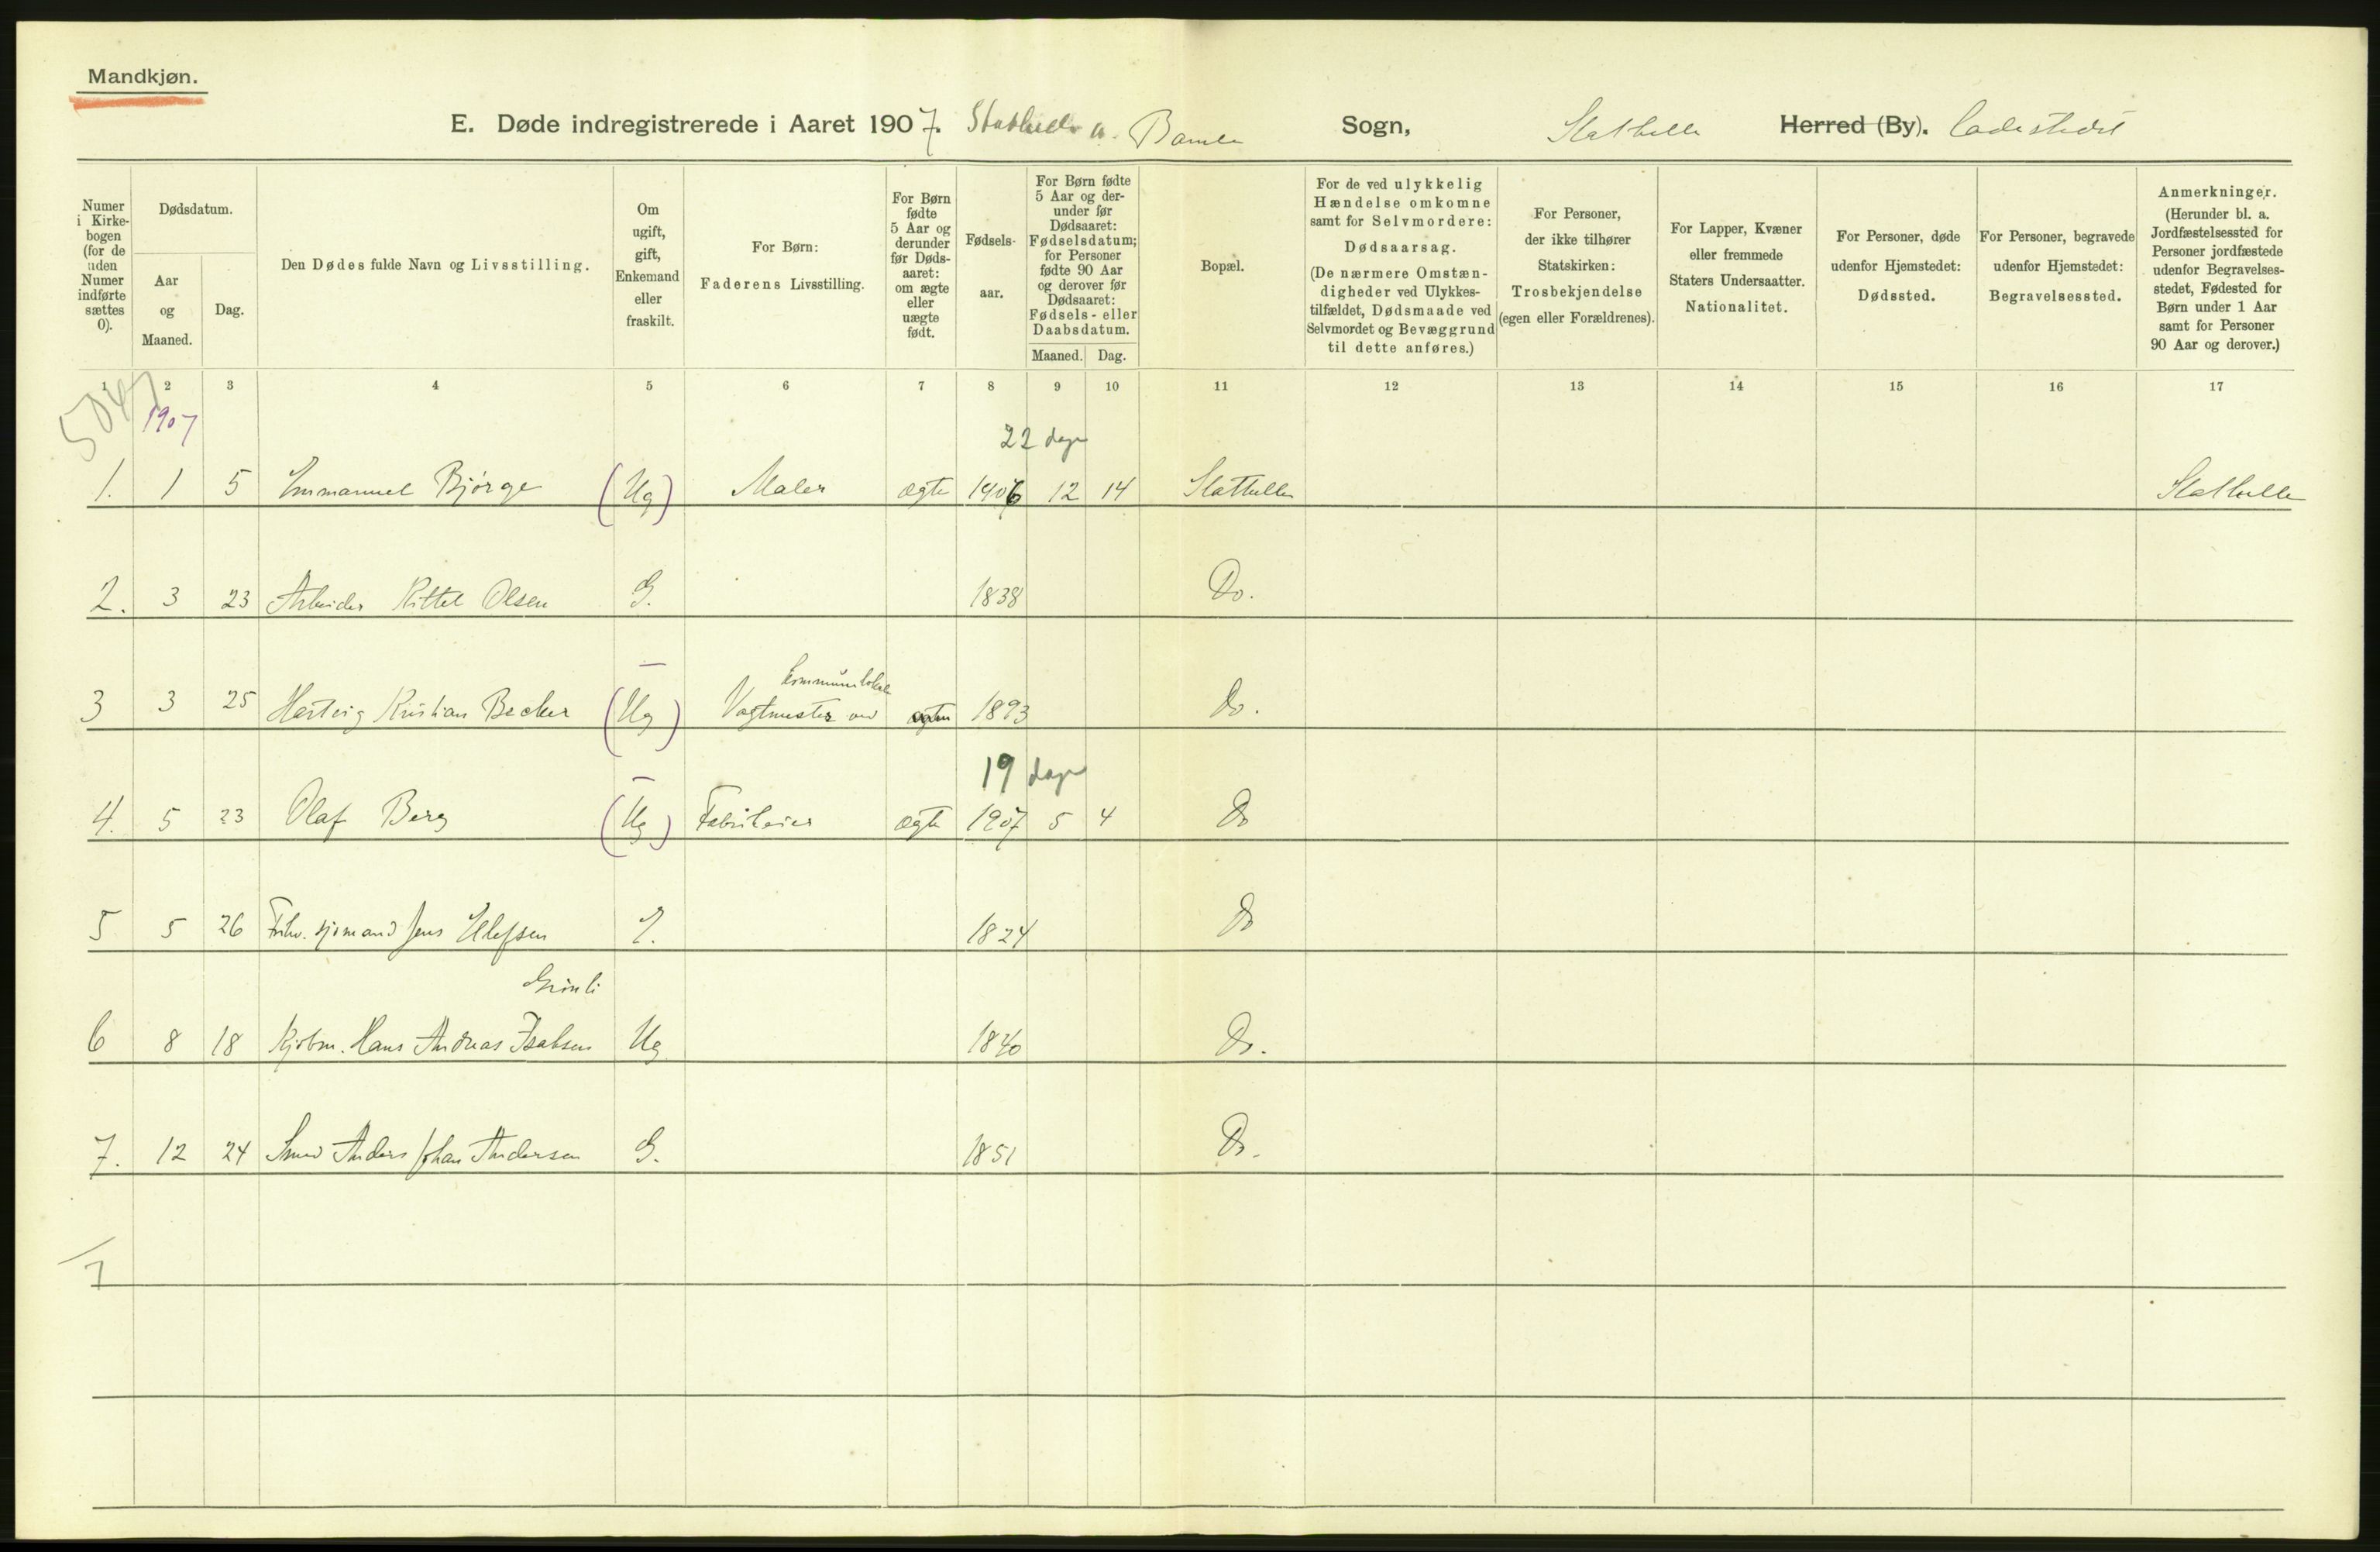 Mandkjøn.
E. Døde indregistrerede i Aaret 1907. Stathelle og Bamle Sogn, Stathelle Herred (By). Ladestedet
Numer i Kirkebogen (for de uden Numer indførte sættes 0).
Dødsdatum.
Aar og Maaned.
Dag.
Den Dødes fulde Navn og Livsstilling.
Om ugift, gift, Enkemand eller fraskilt.
For Børn: Faderens Livsstilling.
For Børn fødte 5 Aar og derunder før Dødsaaret: om ægte eller uægte født.
Fødselsaar.
For Børn fødte 5 Aar og derunder før Dødsaaret: Fødselsdatum; for Personer fødte 90 Aar og derover før Dødsaaret: Fødsels- eller Daabsdatum.
Maaned. Dag.
Bopæl.
For de ved ulykkelig Hændelse omkomne samt for Selvmordere: Dødsaarsag. (De nærmere Omstændigheder ved Ulykkestilfældet, Dødsmaade ved Selvmordet og Bevæggrund til dette anføres.)
For Personer, der ikke tilhører Statskirken: Trosbekjendelse (egen eller Forældrenes).
For Lapper, Kvæner eller fremmede Staters Undersaatter. Nationalitet.
For Personer, døde udenfor Hjemstedet: Dødssted.
For Personer, begravede udenfor Hjemstedet: Begravelsessted.
Anmerkninger. (Herunder bl. a. Jordfæstelsessted for Personer jordfæstede udenfor Begravelsesstedet, Fødested for Børn under 1 Aar samt for Personer 90 Aar og derover.)
1 2 3 4 5 6 7 8 9 10 11 12 13 14 15 16 17
5047
1907
22 dage
1. 1 5 Emmanuel Bjørge (Ug) Maler ægte 1906 12 14 Stathelle Stathelle
2. 3 23 Arbeider Kittel Olsen G. 1838 Do.
kommunelokale
3 3 25 Hartvig Kristian Becker (Ug) Vagtmester ved ægte 1893 do.
19 dage
4. 5 23 Olaf Berg (Ug) Fabrikeier ægte 1907 5 4 Do
5 5 26 Fhv. sjømand Jens Ellefsen E. 1824 Do
Grimli
6 8 18 Kjøbm. Hans Andreas Isaksen Ug 1840 Do.
7. 12 24 Smed Anders Johan Andersen G. 1851 Do.
7